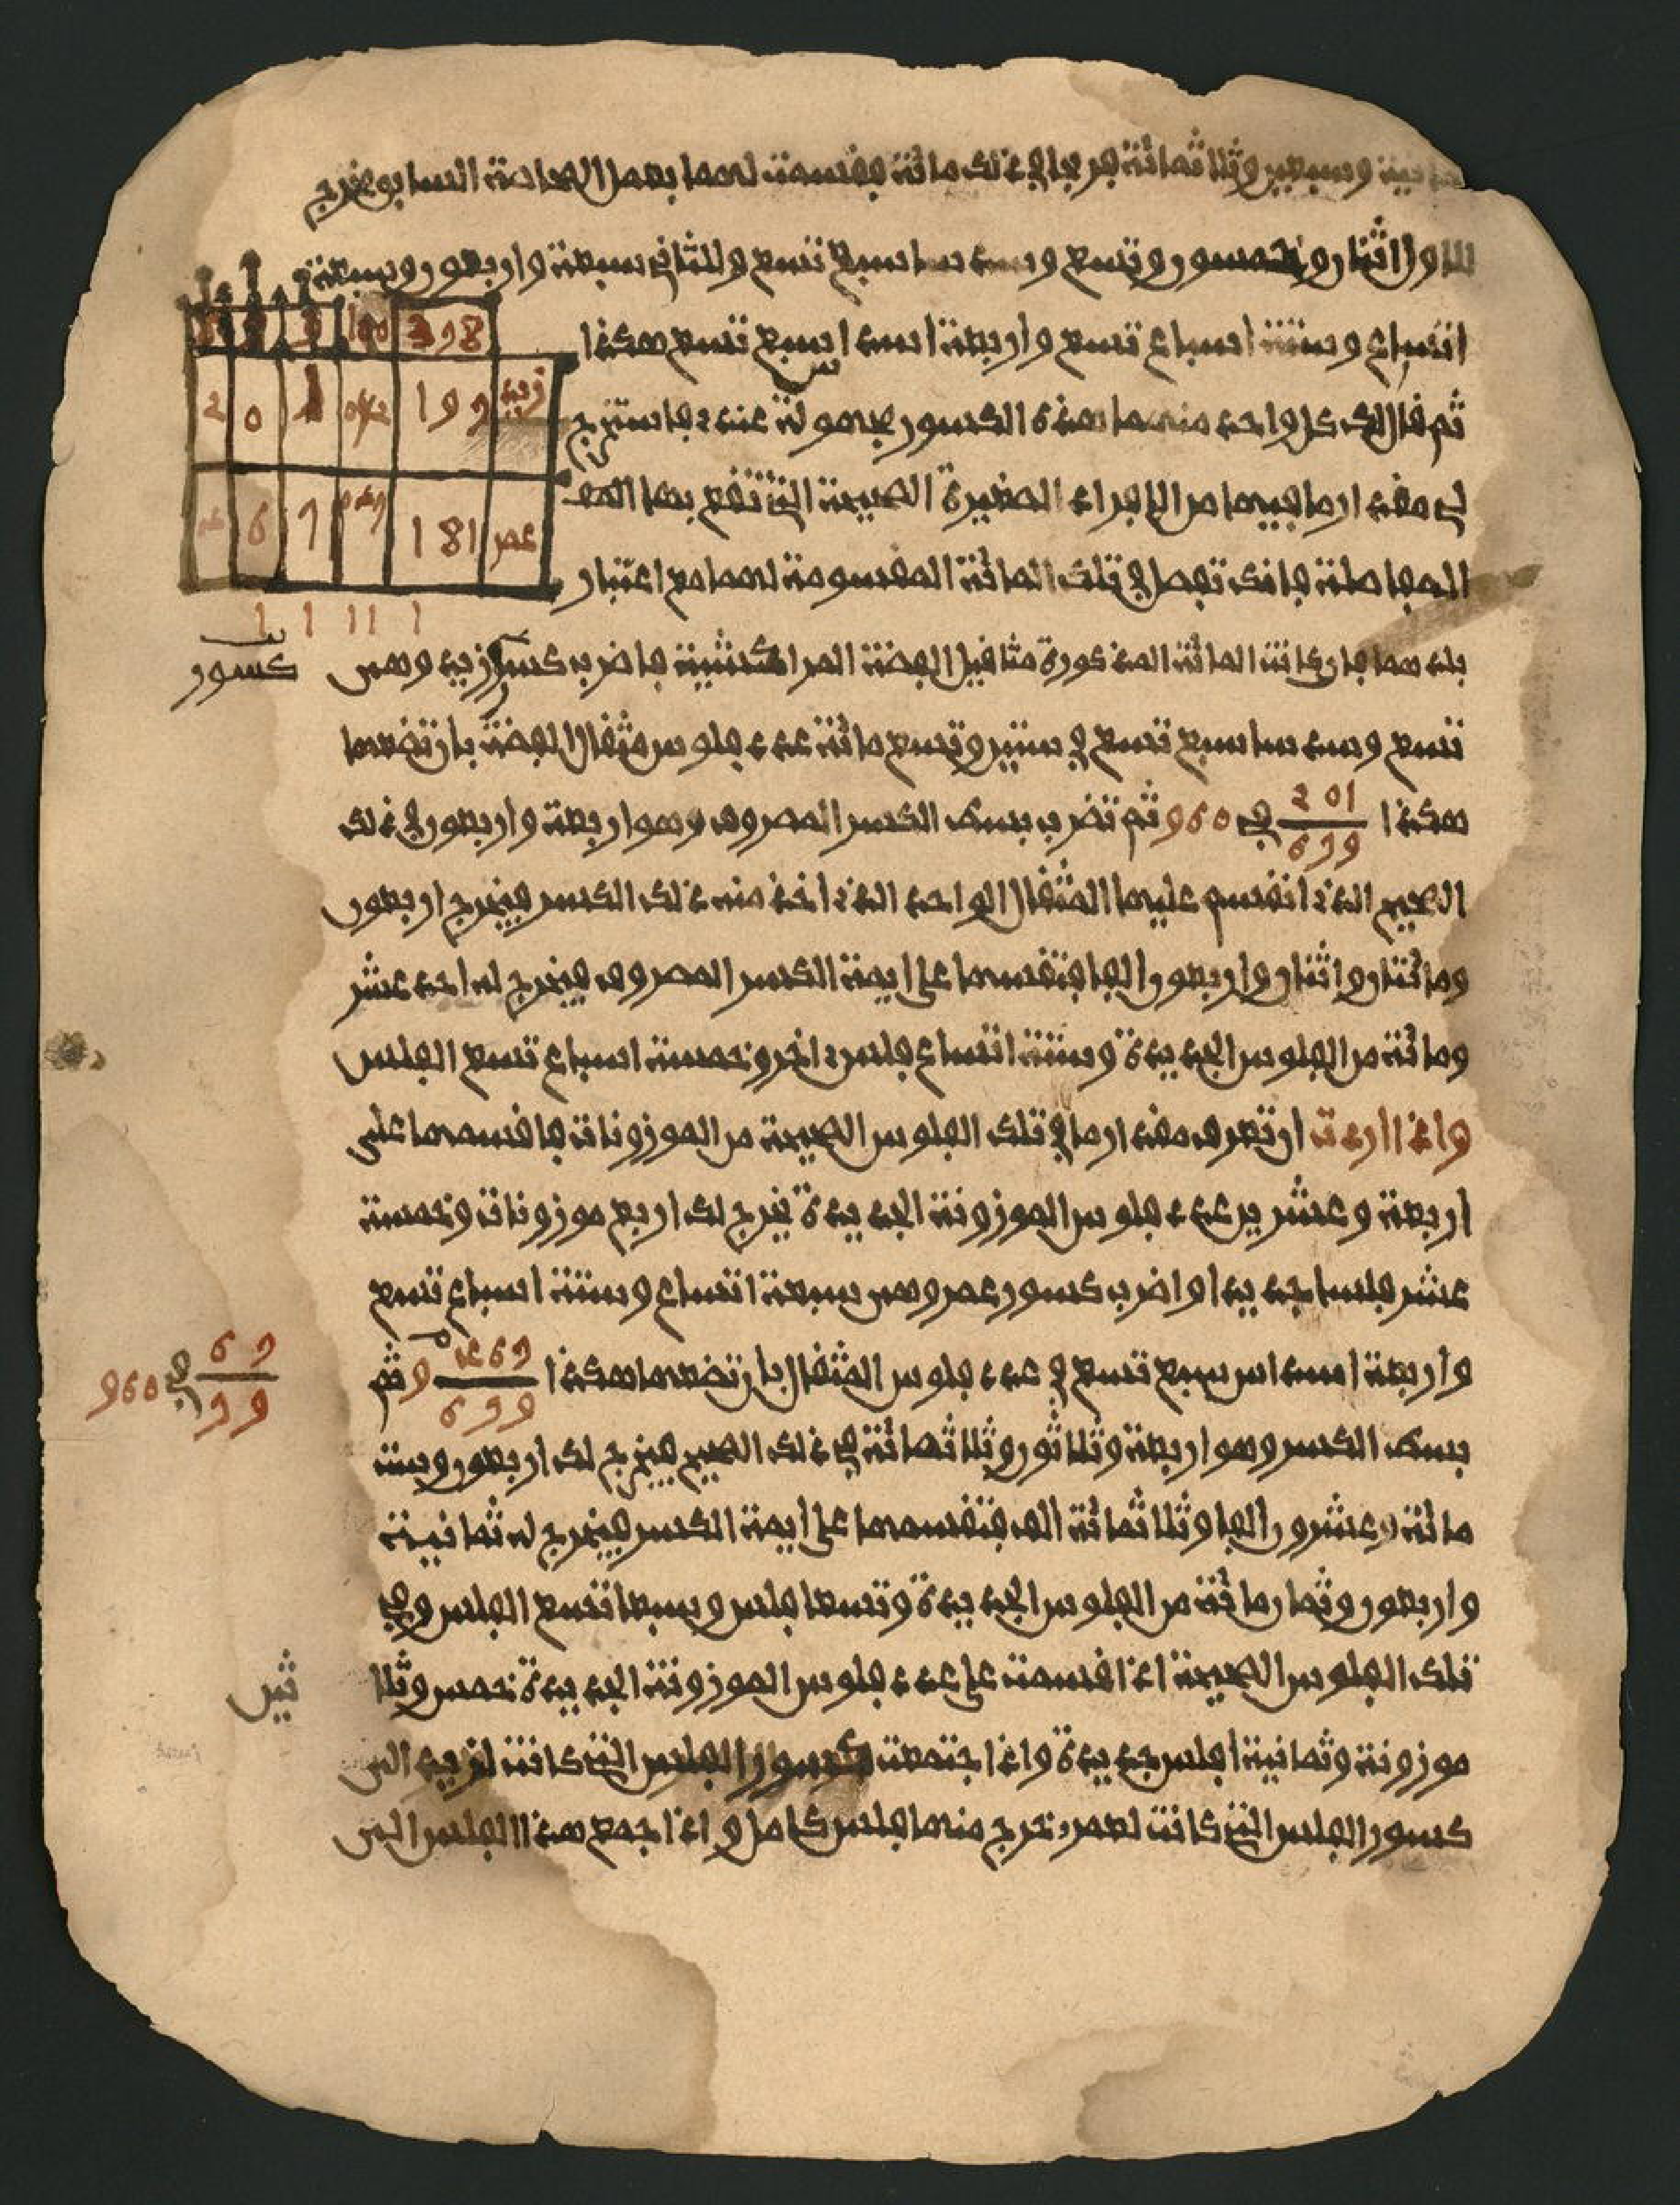 وسبعين وثلاثمائة فرجا في ذلك مائة فقسمت لهما بعمل المحاصة السابق فخرج
للاول اثنان وخمسون وتسع وسدسا سبع تسع وللثاني سبعة واربعون وسبعة
398
اتساع وستة اسباع تسع واربعة اسداس سبع تسع هكذا
2 0 1 52 199 زيد
ثم قال لك كل واحد منهما هذه الكسور مجهولة عندي فاستخرج
لي مقدار ما فيهما من الافراد الصغيرة الصحيحة التي تقع بها
4 6 7 47 181 عمر
المفاصلة فانك تفصل في تلك المائة المقسومة لهما مع اعتبار
1 1 1 1 1
بلدهما فان كانت المائة المذكورة مثاقيل الفضة المراكشية فاضرب كسور زيد وهي
كسور
تسع وسدسا سبع تسع في ستين وتسع مائة عدد فلوس مثقال الفضة بان تضعها
هكذا 2 0 1 / 6 7 9 في 960 ثم تضرب بسط الكسر المصروف وهو اربعة واربعون في ذلك
الصحيح الذي انقسم عليها المثقال الواحد الذي اخذ منه ذلك الكسر فيخرج اربعون
ومائتان واثنان واربعون الفا فتقسمها على ايمة الكسر المصروف فيخرج له احد عشر
ومائة من الفلوس الجديدة وستة اتساع فلس اخر وخمسة اسباع تسع الفلس
واذا اردت ان تعرف مقدار ما في تلك الفلوس الصحيحة من الموزونات فاقسمها على
اربعة وعشرين عدد فلوس الموزونة الجديدة يخرج لك اربع موزونات وخمسة
عشر فلسا جديدا واضرب كسور عمر وهي سبعة اتساع وستة اسباع تسع
واربعة اسداس سبع تسع في عدد فلوس المثقال بان تضعها هكذا 4 6 7 / 6 7 9 ثم
6 7 / 7 9 في 960
بسط الكسر وهو اربعة وثلاثون وثلاثمائة في ذلك الصحيح فيخرج لك اربعون وست
مائة وعشرون الفا وثلاثمائة الف فتقسمها على ايمة الكسر فيخرج له ثمانية
واربعون وثمان مائة من الفلوس الجديدة وتسعا فلس وسبعا تسع الفلس وفي
تلك الفلوس الصحيحة اذا قسمت على عدد فلوس الموزونة الجديدة خمس وثلا
ثين
موزونة وثمانية افلس جديدة واذا اجتمعت كسور الفلس التي كانت لزيد الى
كسور الفلس التي كانت لعمر، خرج منها فلس كامل واذا جمع هذا الفلس الى